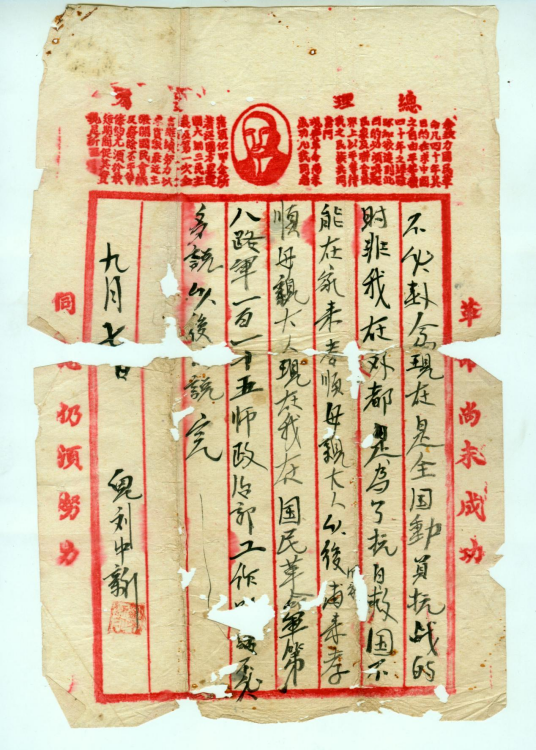 總理
余致力國民革
命凡四十年其
目的在求中國
之自由平等積
四十年之經驗
深知欲達到此
目的必須喚起
民眾及聯合世
界上以平等待
我之民族共同
奮鬥
現在革命尚未
成功凡我同志
國大綱三民主
義及第一次全
言繼續努力以
求貫徹最近主
張開國民會議
及廢除不平等
條約尤須於最
短期間促其實
現是所至囑
革 尚未成功
不必赴念現在是全国動員抗战的
时非我在外都是為了抗日救国不
能在家来孝順母親大人以後再来孝
順母親大人現在我在国民革命軍第
八路軍一百一十五师政治部工作
多說以後 說完
九月七日
兒刘中新
同 仍須努力